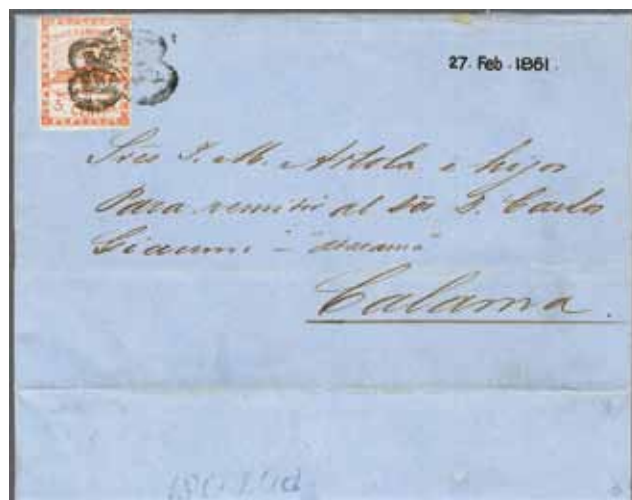 27. Feb. 1861.
5 CENT
Sres J. M. Artola e hijos
Para remitir al Sor D. Carlos
Giacumi - "Atacama"
Calama.